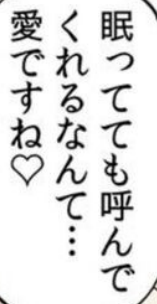 眠ってても呼んで
くれるなんて…
愛ですね♡